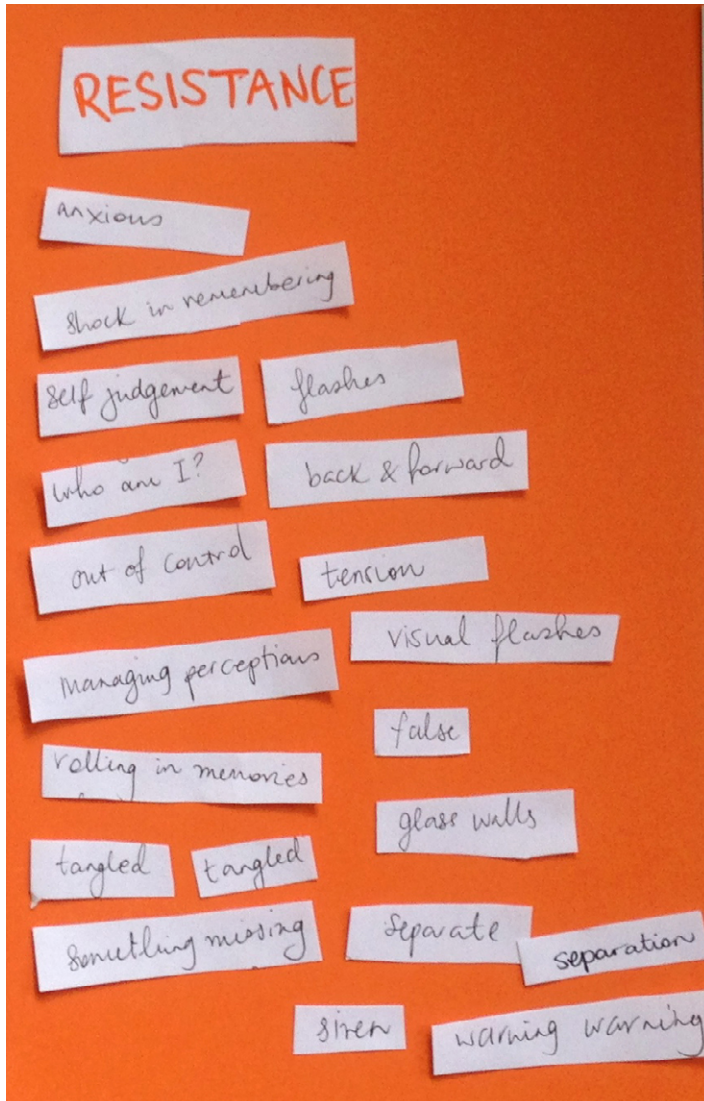 RESISTANCE
anxious
shock in remembering
self judgement
flashes
who am I?
back & forward
out of control
tension
visual flashes
managing perceptions
false
rolling in memories
glass walls
tangled
tangled
something missing
separate
separation
siren
warning warning